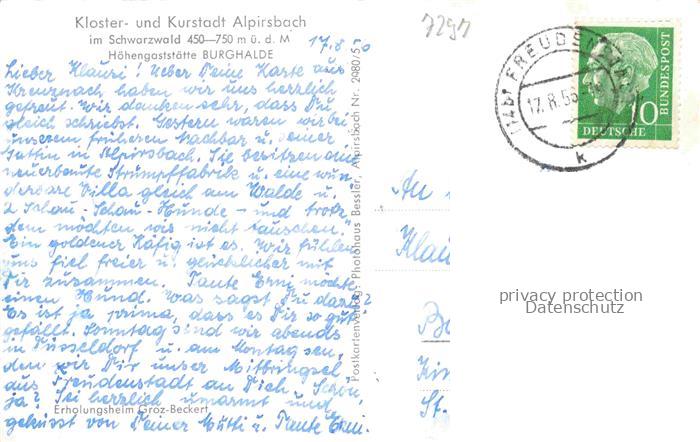 Kloster- und Kurstadt Alpirsbach
im Schwarzwald 450—750 m ü. d. M
Höhengaststätte BURGHALDE
7297
17.8.
Lieber Klausi! Ueber Deine Karte aus
Kreuznach haben wir uns herzlich
gefreut. Wir danken sehr, dass Du
gleich schriebst. Gestern waren wir bei
unserem früheren Nachbar u. seiner
Gattin in Alpirsbach. Sie besitzen eine
neuerbaute Strumpffabrik u. eine wun-
derbare Villa gleich am Walde u.
2 Schau-Hunde - und trotz-
dem möchten wir nicht tauschen.
Ein goldener Käfig ist es. Wir fühlen
uns fiel freier u. glücklicher mit
Dir zusammen. Tante Erni möchte
einen Hund. Was sagst Du dazu?
Es ist ja prima, dass es Dir so gut
gefällt. Sonntag sind wir abends
in Düsseldorf u. am Montag sen-
den wir Dir unser Mitbringsel
aus Freudenstadt an Dich. Schön,
ja? Sei herzlich umarmt und
geküsst von Deiner Mutti u. Tante Erni.
Erholungsheim Groz-Beckert
Postkartenverlag: Photohaus Bessler, Alpirsbach Nr. 2980/5
FREUDENSTADT
17.8.55
k
10
DEUTSCHE
BUNDESPOST
An
Klau
St.
privacy protection
Datenschutz